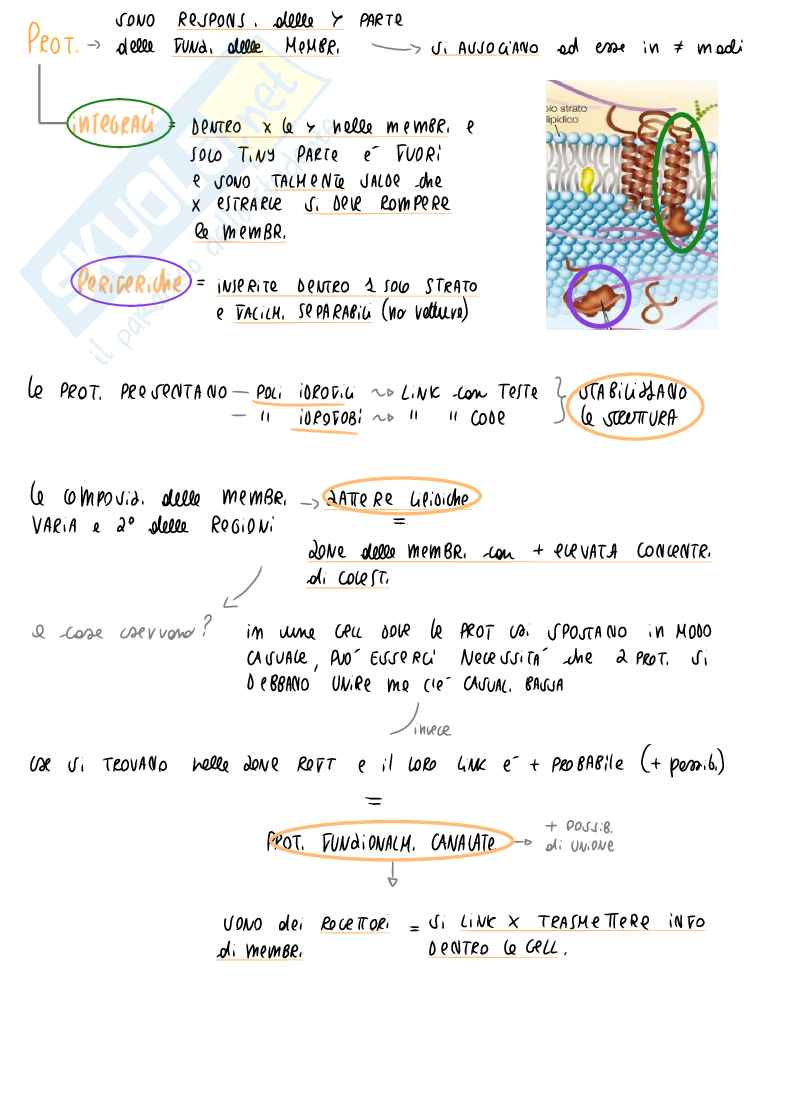 SONO RESPONS. delle > PARTE
PROT. → delle FUNZ. delle MEMBR. → SI ASSOCIANO ad esse in ≠ modi
INTEGRALI = DENTRO x la > nelle membr. e
SOLO TINY PARTE è FUORI
e SONO TALMENTE SALDE che
x ESTRARLE SI DEVE ROMPERE
la membr.
pio strato
lipidico
PERIFERICHE = INSERITE DENTRO 1 SOLO STRATO
e FACILM. SEPARABILI (no rotture)
le PROT. PRESENTANO — POLI IDROFILI ~> LINK con TESTE
— " IDROFOBI ~> " " CODE
STABILIZZANO
la STRUTTURA
la COMPOSIZ. delle MEMBR. → ZATTERE LIPIDICHE
VARIA a 2° delle REGIONI
=
ZONE delle MEMBR. con + ELEVATA CONCENTR.
di COLEST.
a cosa servono? in una CELL DOVE le PROT si SPOSTANO in MODO
CASUALE, PUÒ ESSERCI NECESSITÀ che 2 PROT. SI
DEBBANO UNIRE ma C'È CASUAL. BASSA
invece
se SI TROVANO nelle ZONE RAFT e il LORO LINK è + PROBABILE (+ possib.)
=
PROT. FUNZIONALM. CANALATE → + POSSIB.
di UNIONE
SONO dei RECETTORI = SI LINK X TRASMETTERE INFO
di membr. DENTRO la CELL.
SKUOLA.net